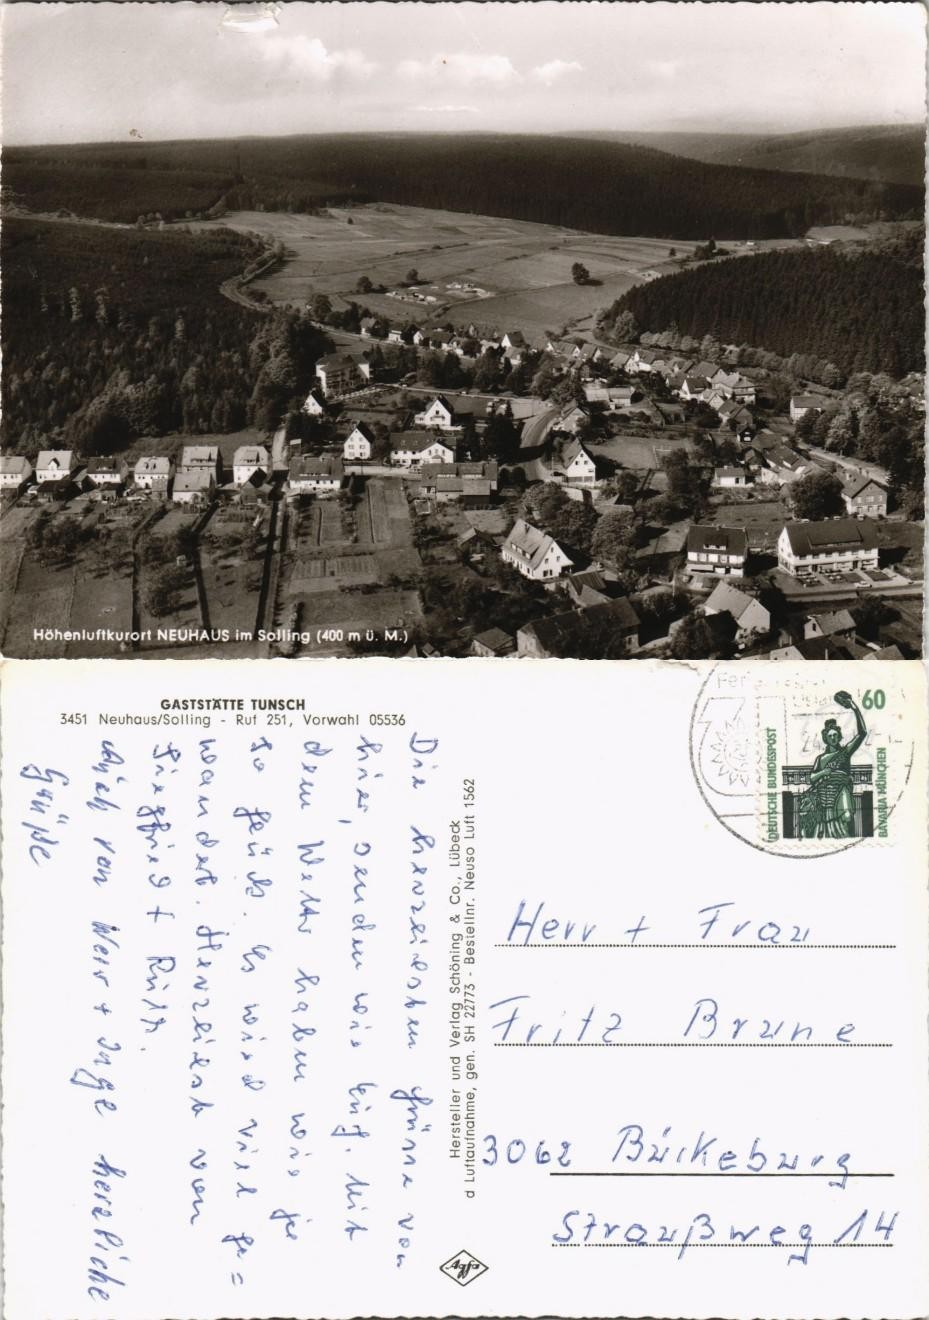 Höhenluftkurort NEUHAUS im Solling (400 m ü. M.)
GASTSTÄTTE TUNSCH
3451 Neuhaus/Solling - Ruf 251, Vorwahl 05536
Die herzlichsten Grüsse von
hier, senden wir Euch. Mit
dem Wetter haben wir ja
so Glück. Es wird viel ge=
wandert. Herzlichst von
Siegfried + Ruth.
Auch von Werner + Inge herzliche
Grüße
Hersteller und Verlag Schöning & Co., Lübeck
d Luftaufnahme, gen. SH 22773 - Bestellnr. Neuso Luft 1562
Agfa
60
DEUTSCHE BUNDESPOST
BAVARIA MÜNCHEN
Herr + Frau
Fritz Brune
3062 Bückeburg
Straußweg 14